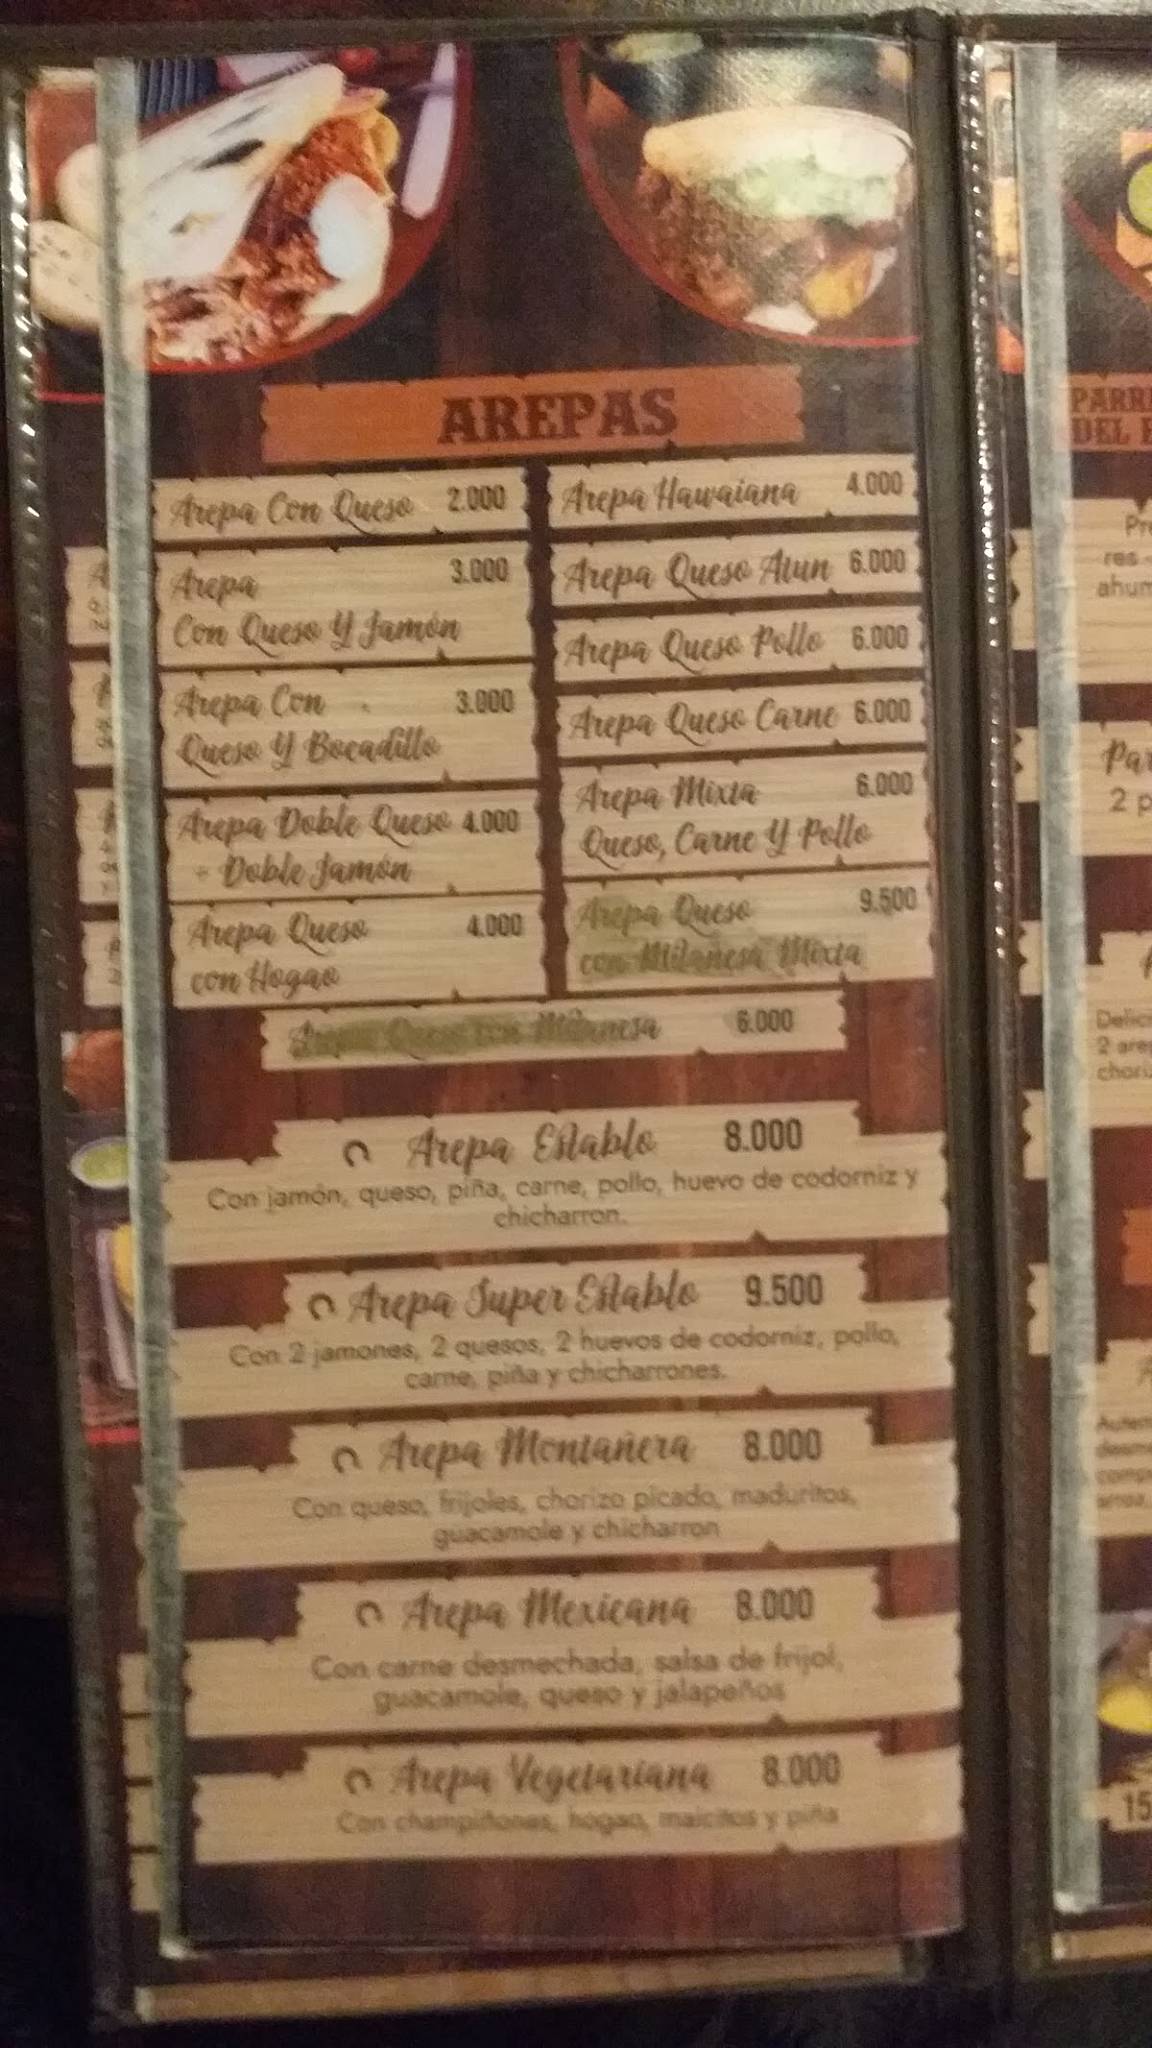 AREPAS
Arepa Con Queso 2.000
Arepa 3.000
Con Queso Y Jamón
Arepa Con 3.000
Queso Y Bocadillo
Arepa Doble Queso 4.000
+ Doble Jamón
Arepa Queso 4.000
con Hogao
Arepa Hawaiana 4.000
Arepa Queso Atun 6.000
Arepa Queso Pollo 6.000
Arepa Queso Carne 6.000
Arepa Mixta 6.000
Queso, Carne Y Pollo
Arepa Queso 9.500
con Milañesa Mixta
Arepa Queso con Milanesa 6.000
Arepa Establo 8.000
Con jamón, queso, piña, carne, pollo, huevo de codorniz y
chicharron.
Arepa Super Establo 9.500
Con 2 jamones, 2 quesos, 2 huevos de codorniz, pollo,
carne, piña y chicharrones.
Arepa Montañera 8.000
Con queso, frijoles, chorizo picado, maduritos,
guacamole y chicharron
Arepa Mexicana 8.000
Con carne desmechada, salsa de frijol,
guacamole, queso y jalapeños
Arepa Vegetariana 8.000
Con champiñones, hogao, maicitos y piña
PARRI
DEL E
Pre
res -
ahum
Par
2 p
Delici
2 arep
choriz
15